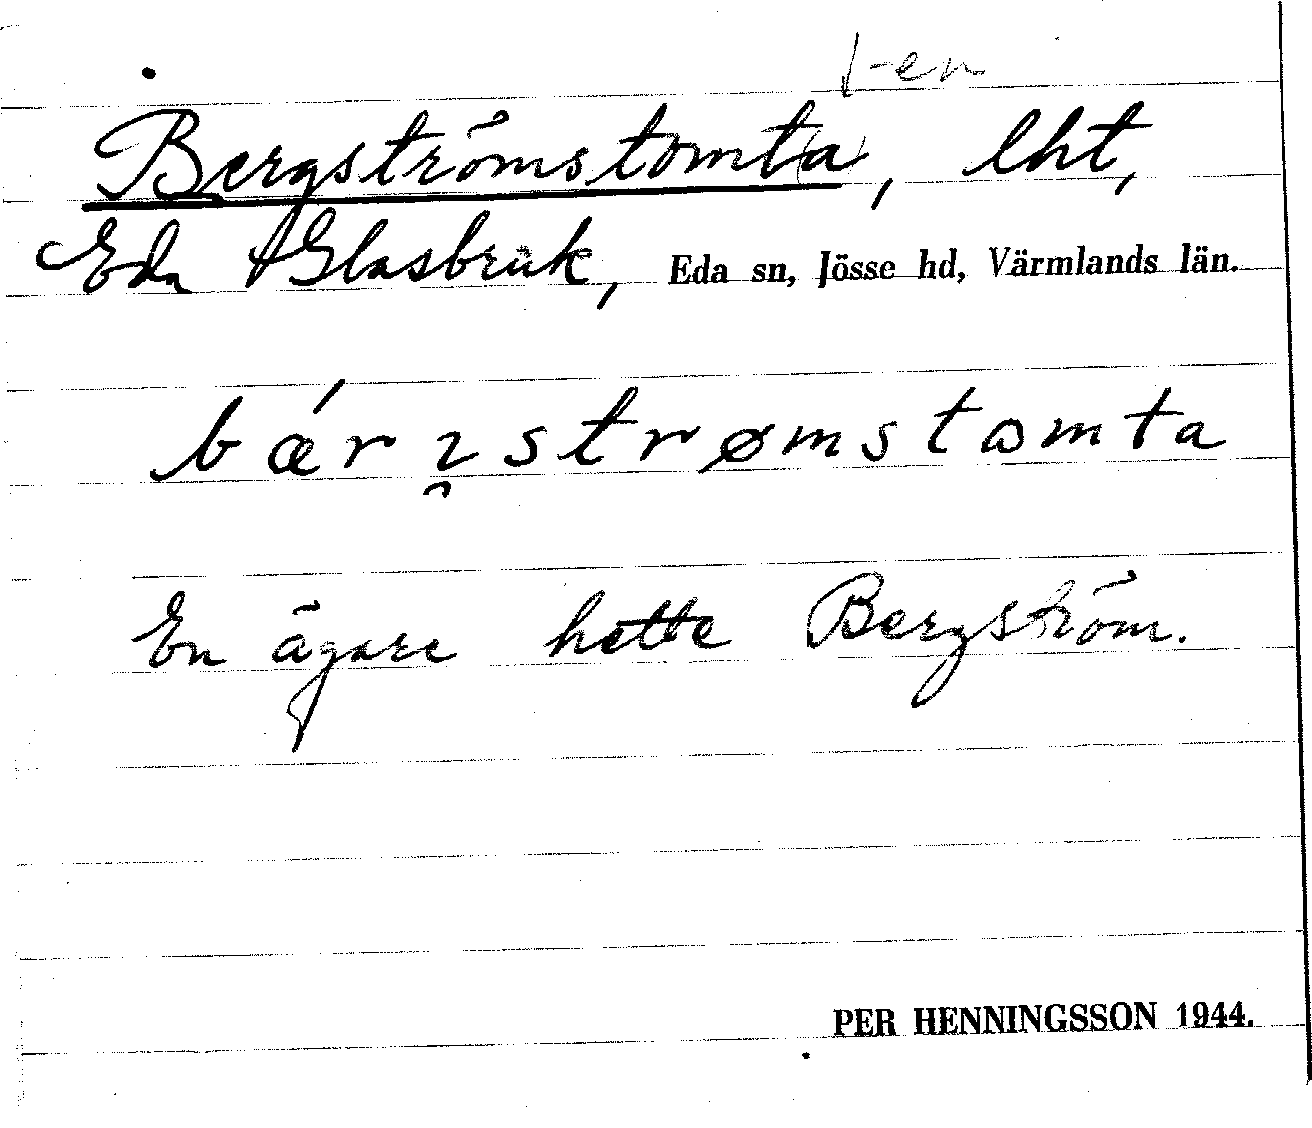 -en
Bergströmstomt(a), lht,
Eda Glasbruk, Eda sn, Jösse hd, Värmlands län.
bǽrꝛ̯strømstωmta
En ägare hette Bergström.
PER HENNINGSSON 1944.